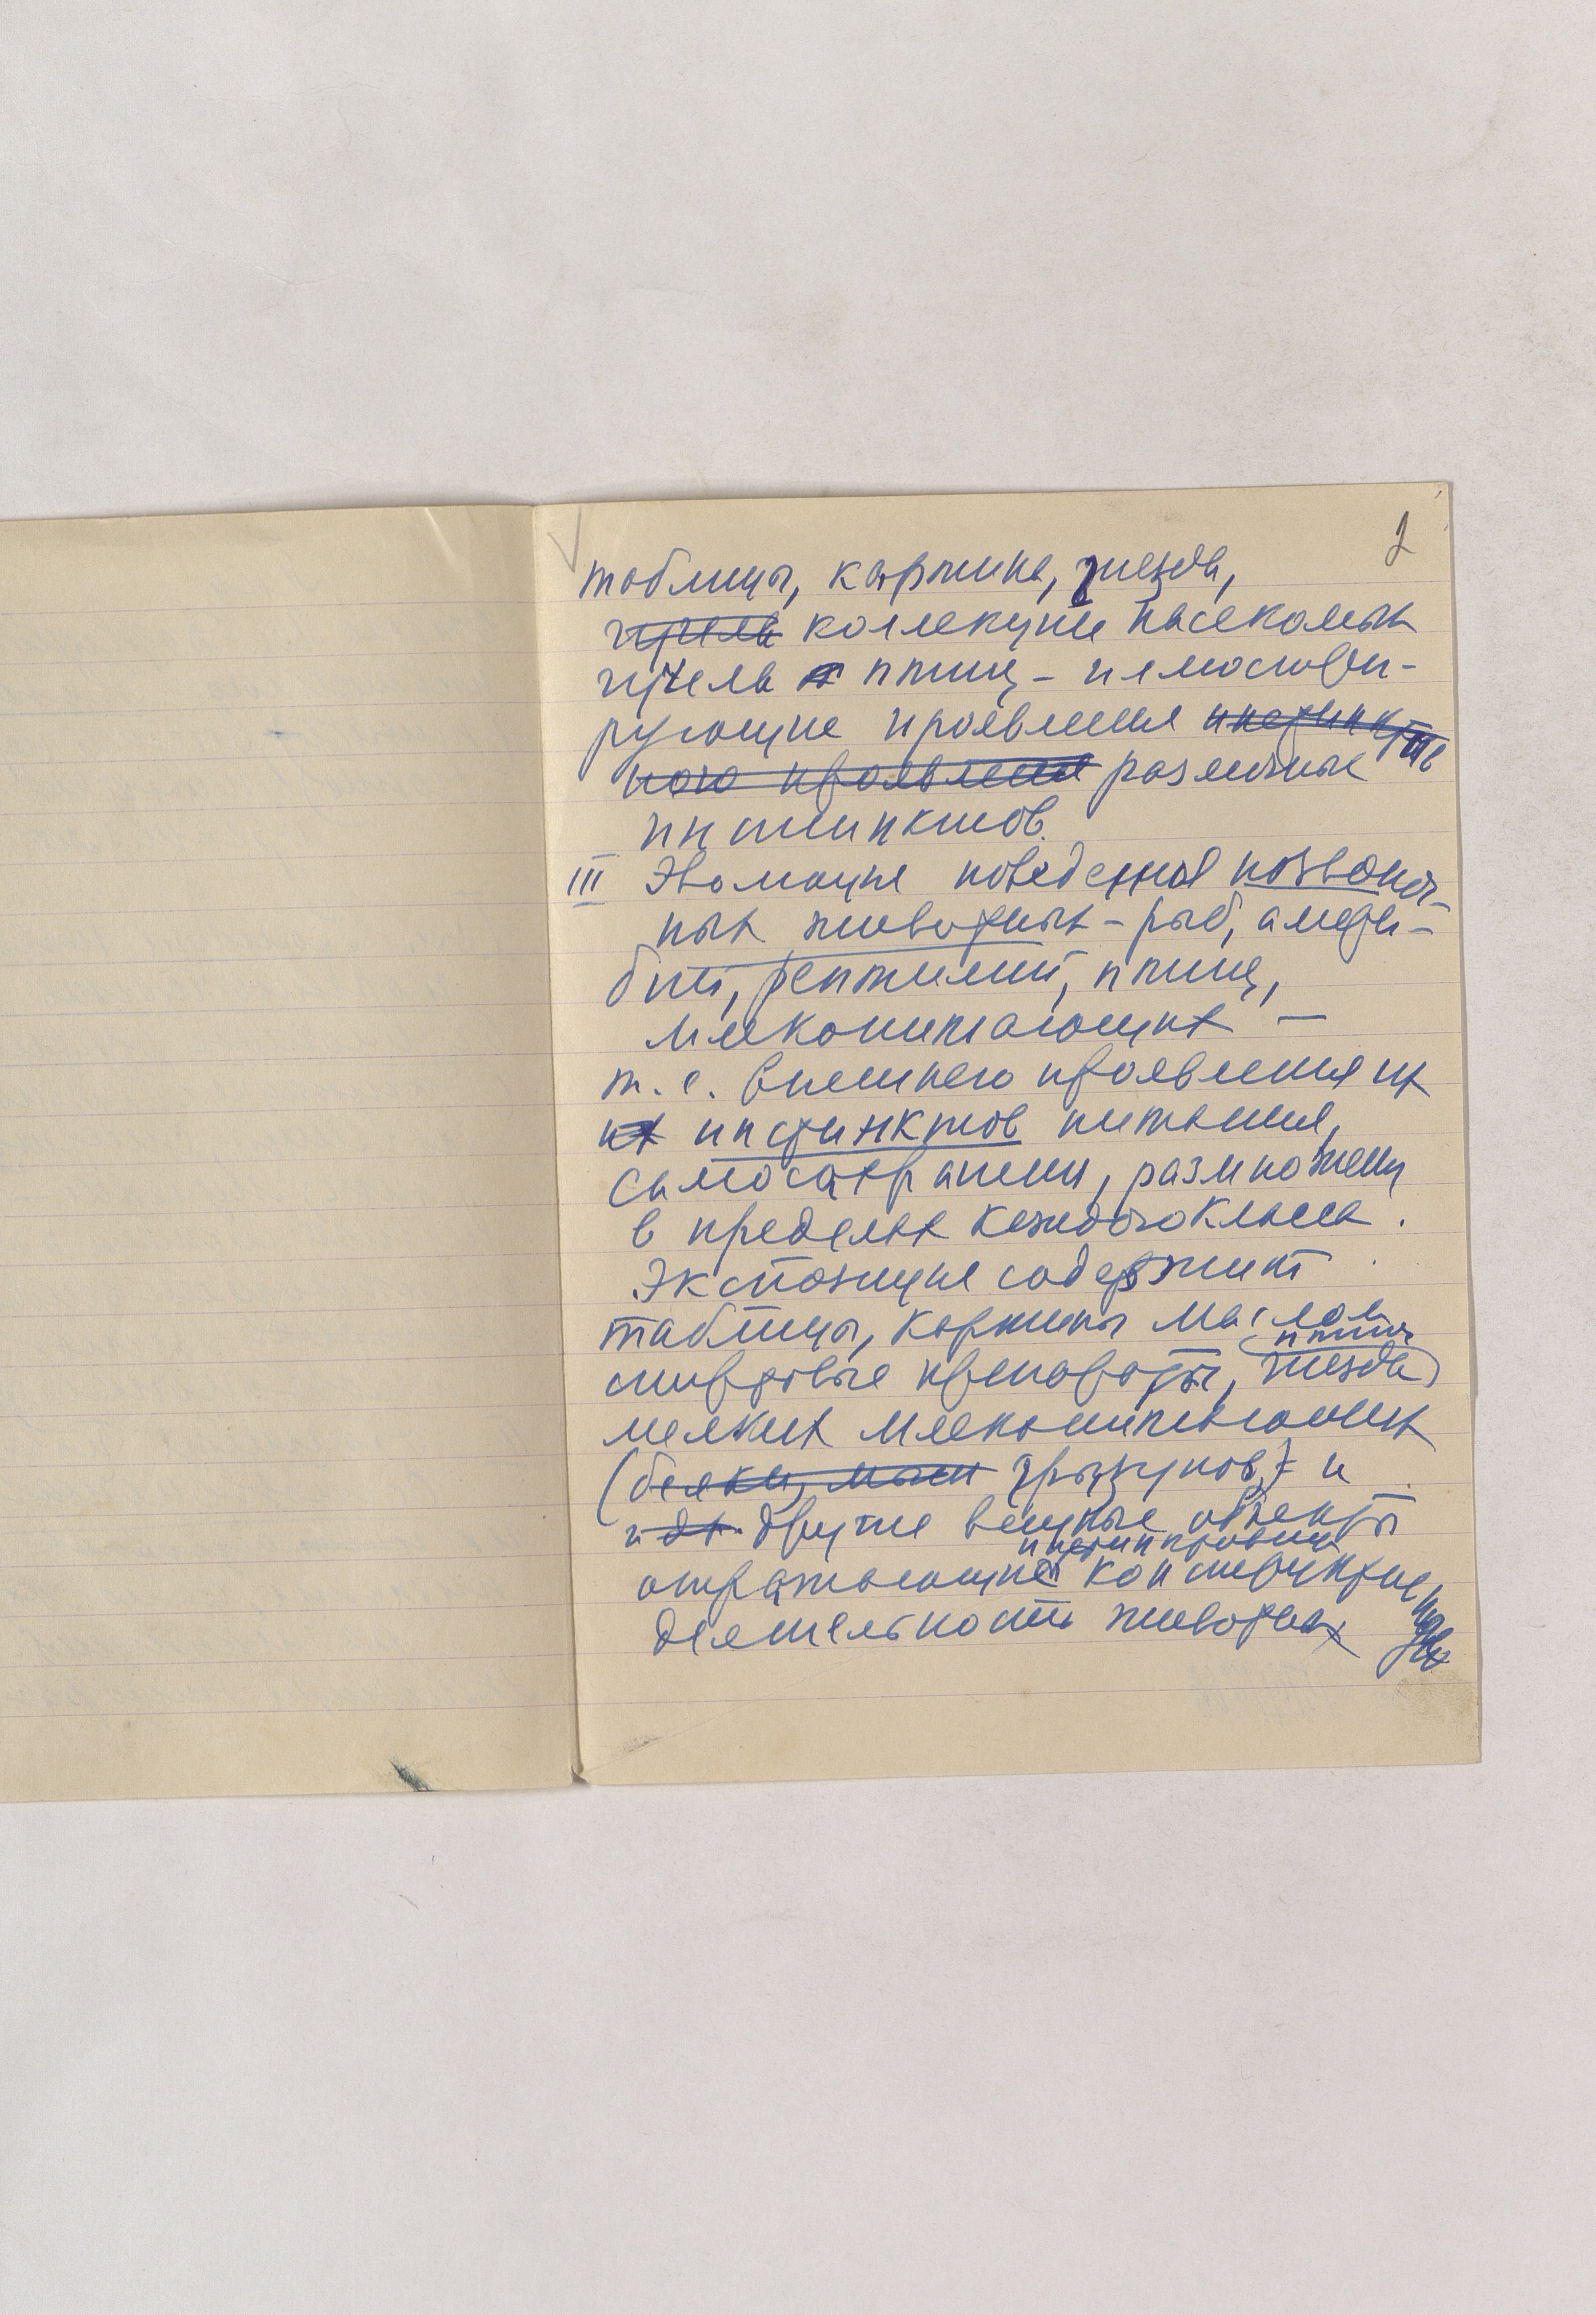 2
таблицы, картина, гнезда,
чучела коллекции насекомых
чучела птиц - иллюстри-
рующие проявления инстинктив
ного проявления различные
инстинктов.
III Эволюция поведения позвоноч-
ных животных - рыб, амфи-
бий, рептилий, птиц,
млекопитающих —
т. е. внешнего проявления их
их инстинктов питания,
самосохранения, размножения
в пределах каждого класса.
Экспозиция содержит
таблицы, картины маслом
птиц
спиртовые препараты, гнезда)
мелких млекопитающих
(белки, мыши грызунов) и
и др. другие вещные объекты
инстинктивный
отражающие конструктивн
деятельность животных